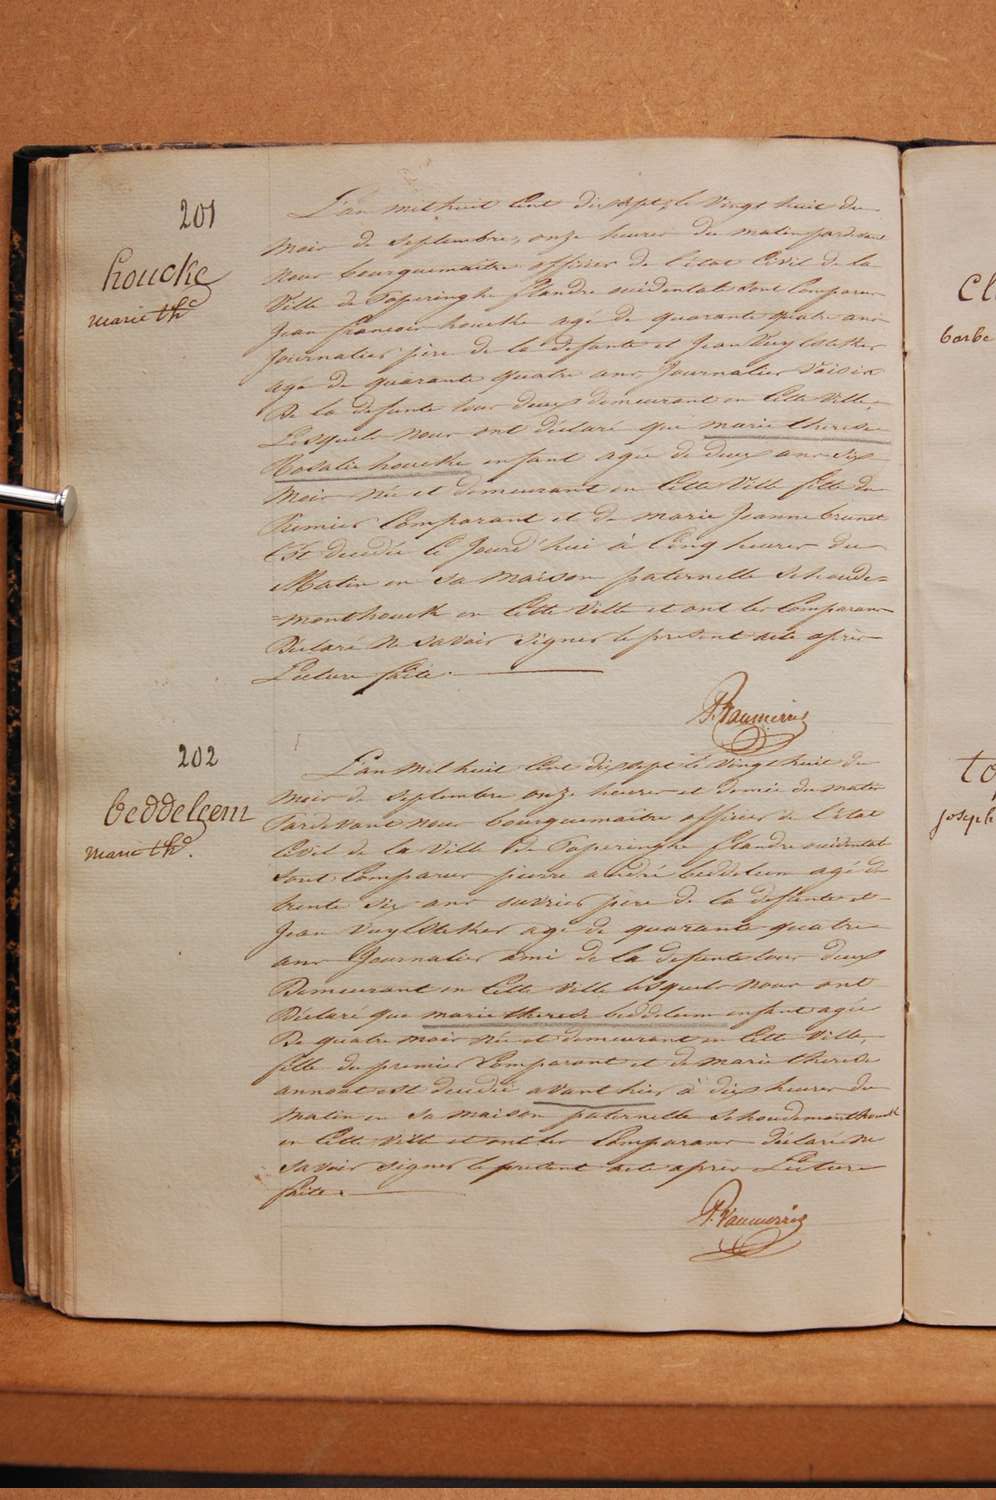 201
houcke
marie th^e
L'an mil huit Cent dix sept, le vingt huit du
mois de Septembre, onze heures du matin pardevant
nous bourguemaitre officier de l'état Civil de la
Ville de Poperinghe flandre occidentale sont Comparus
Jean francois houcke agé de quarante quatre ans
Journalier père de la defunte et Jean Vuylsteker
agé de quarante quatre ans Journalier Voisin
De la defunte tous deux demeurant en Cette Ville,
Lesquels nous ont déclaré que marie therese
Rosalie houcke enfant agée de deux ans six
mois née et demeurant en Cette Ville fille du
Premier Comparant et de marie Jeanne brunet
Est decedée le Jourd'hui à Cinq heures du
Matin en sa maison paternelle Schoude=
=monthouck en Cette Ville et ont les Comparans
Déclaré ne savoir signer le present acte après
Lecture faite.
202
beddeleem
marie th^e.
L'an mil huit Cent dix sept le vingt huit du
mois de Septembre onze heures et demie du matin
Pardevant nous bourguemaitre officier de l'état
Civil de la Ville de Poperinghe flandre occidentale
sont Comparus pierre andré beddeleem agé de
trente six ans ouvrier père de la defunte et
Jean Vuylsteker agé de quarante quatre
ans Journalier ami de la defunte tous deux
Demeurant en Cette Ville lesquels nous ont
Déclaré que marie therese beddeleem enfant agée
De quatre mois née et demeurant en Cette Ville,
fille du premier Comparant et de marie therese
annoot est decedée avant hier à dix heures du
Matin en sa maison paternelle Schoudemonthouck
en Cette Ville et ont les Comparans déclaré ne
savoir signer le present acte après Lecture
faite.
barbe
joseph